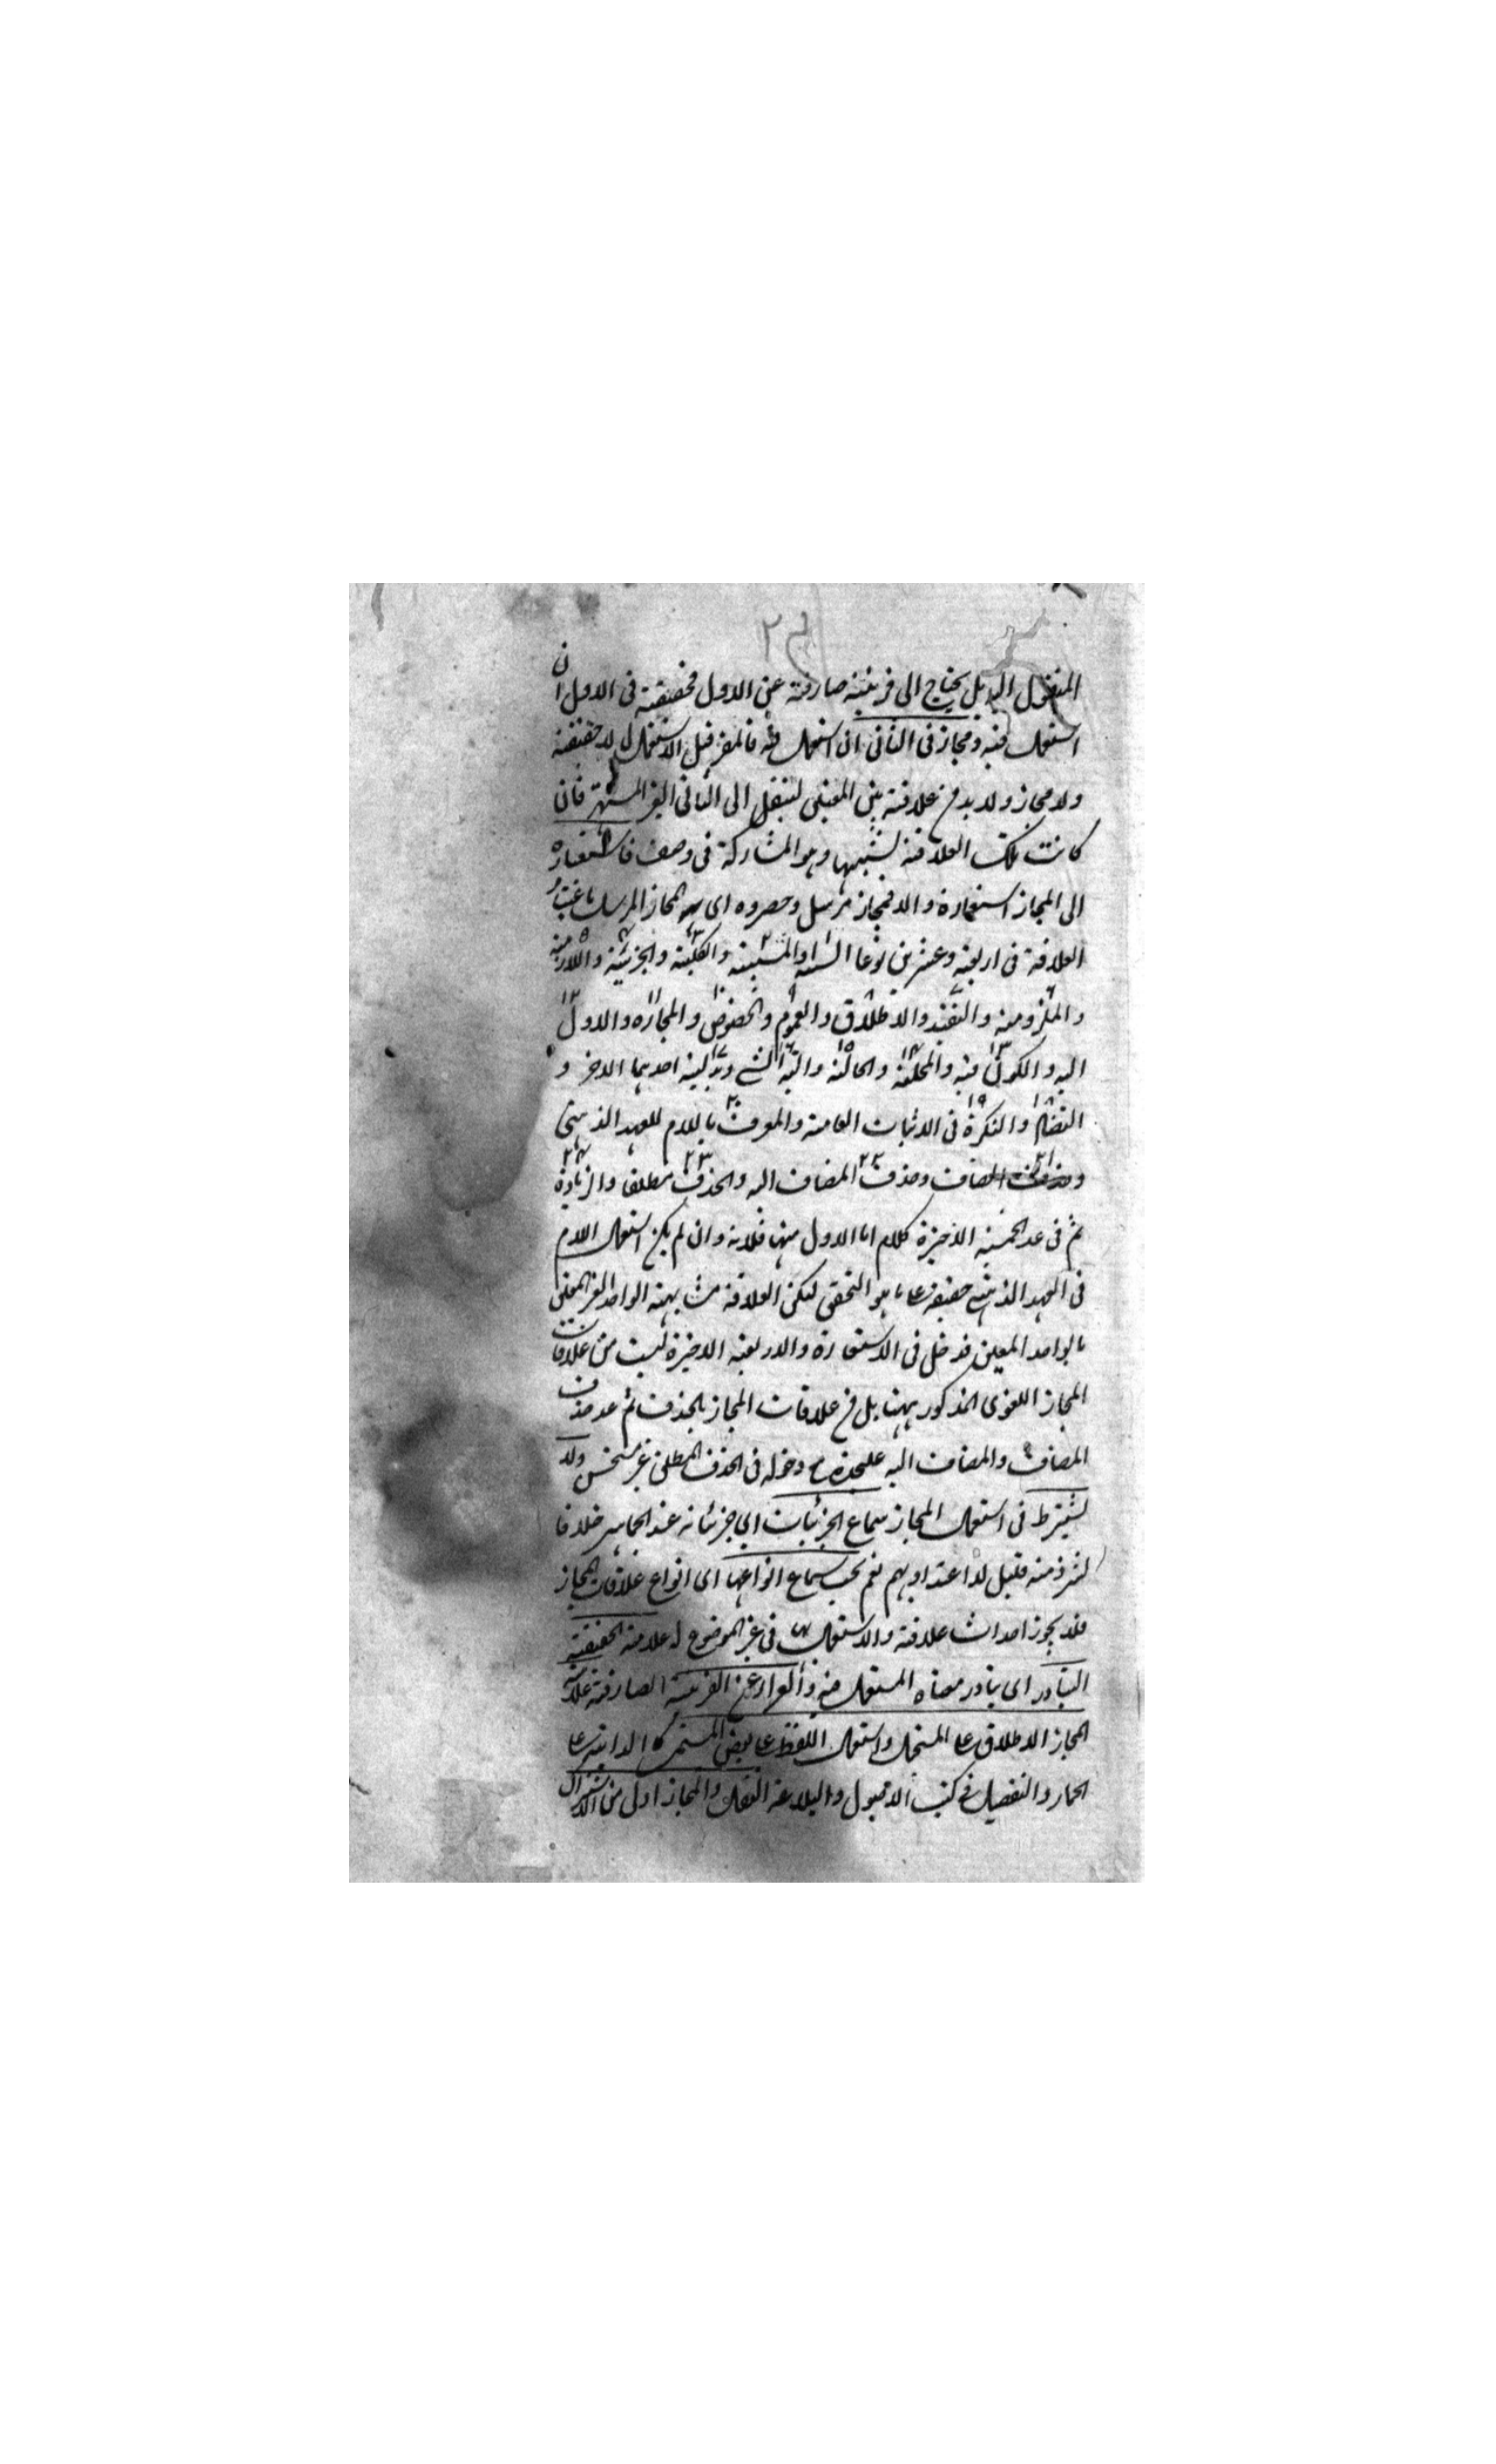 المنقول اليه بل يحتاج الى قرينة صارفة عن الاول فحقيقة فى الاول ان
استعمل فيه ومجاز فى الثانى ان استعمل فيه فالمفرد قبل الاستعمال لا حقيقة
ولا مجاز ولا بد من علاقة بين المعنيين لينتقل الى الثانى الغير المشتهر فان
كانت تلك العلاقة تشبيها وهو المشاركة فى وصف فاستعارة
اى المجاز استعارة والا فمجاز مرسل وحصروه اى المجاز المرسل باعتبار
العلاقة فى اربعة وعشرين نوعا السببية والمسببية والكلية والجزئية واللازمية
والملزومية والتقييد والاطلاق والعموم والخصوص والمجاورة والاول
اليه والكون فيه والمحلية والحالية والية الشئ وبدلية احدهما الاخر و
التضاد والنكرة فى الاثبات العامة والمعرف باللام للعهد الذهنى
وحذف المضاف وحذف المضاف اليه والحذف مطلقا والزيادة
ثم فى عد الخمسة الاخيرة كلام اما الاول منها فلانه وان لم يكن استعمال اللام
فى العهد الذهنى حقيقة على ما هو التحقيق لكن العلاقة مشابهة الواحد الغير المعين
بالواحد المعين فدخل فى الاستعارة والاربعة الاخيرة ليست من علاقات
المجاز اللغوى المذكور ههنا بل من علاقات المجاز بالحذف ثم عد حذف
المضاف والمضاف اليه عليحدة مع دخوله فى الحذف المطلق غير مستحسن ولا
يشترط فى استعمال المجاز سماع الجزئيات اى جزئياته عند الجماهير خلافا
لشرذمة قليل لا اعتداد بهم نعم يجب سماع انواعها اى انواع علاقات المجاز
فلا يجوز احداث علاقة والاستعمال بها فى غير الموضوع له علامة الحقيقة
التبادر اى تبادر معناه المستعمل فيه والعراء عن القرينة الصارفة علامة
المجاز الاطلاق على المستحيل واستعمال اللفظ على بعض المسمى كالدابة على
الحمار والتفصيل فى كتب الاصول والبلاغة النقل والمجاز اولى من الاشتراك